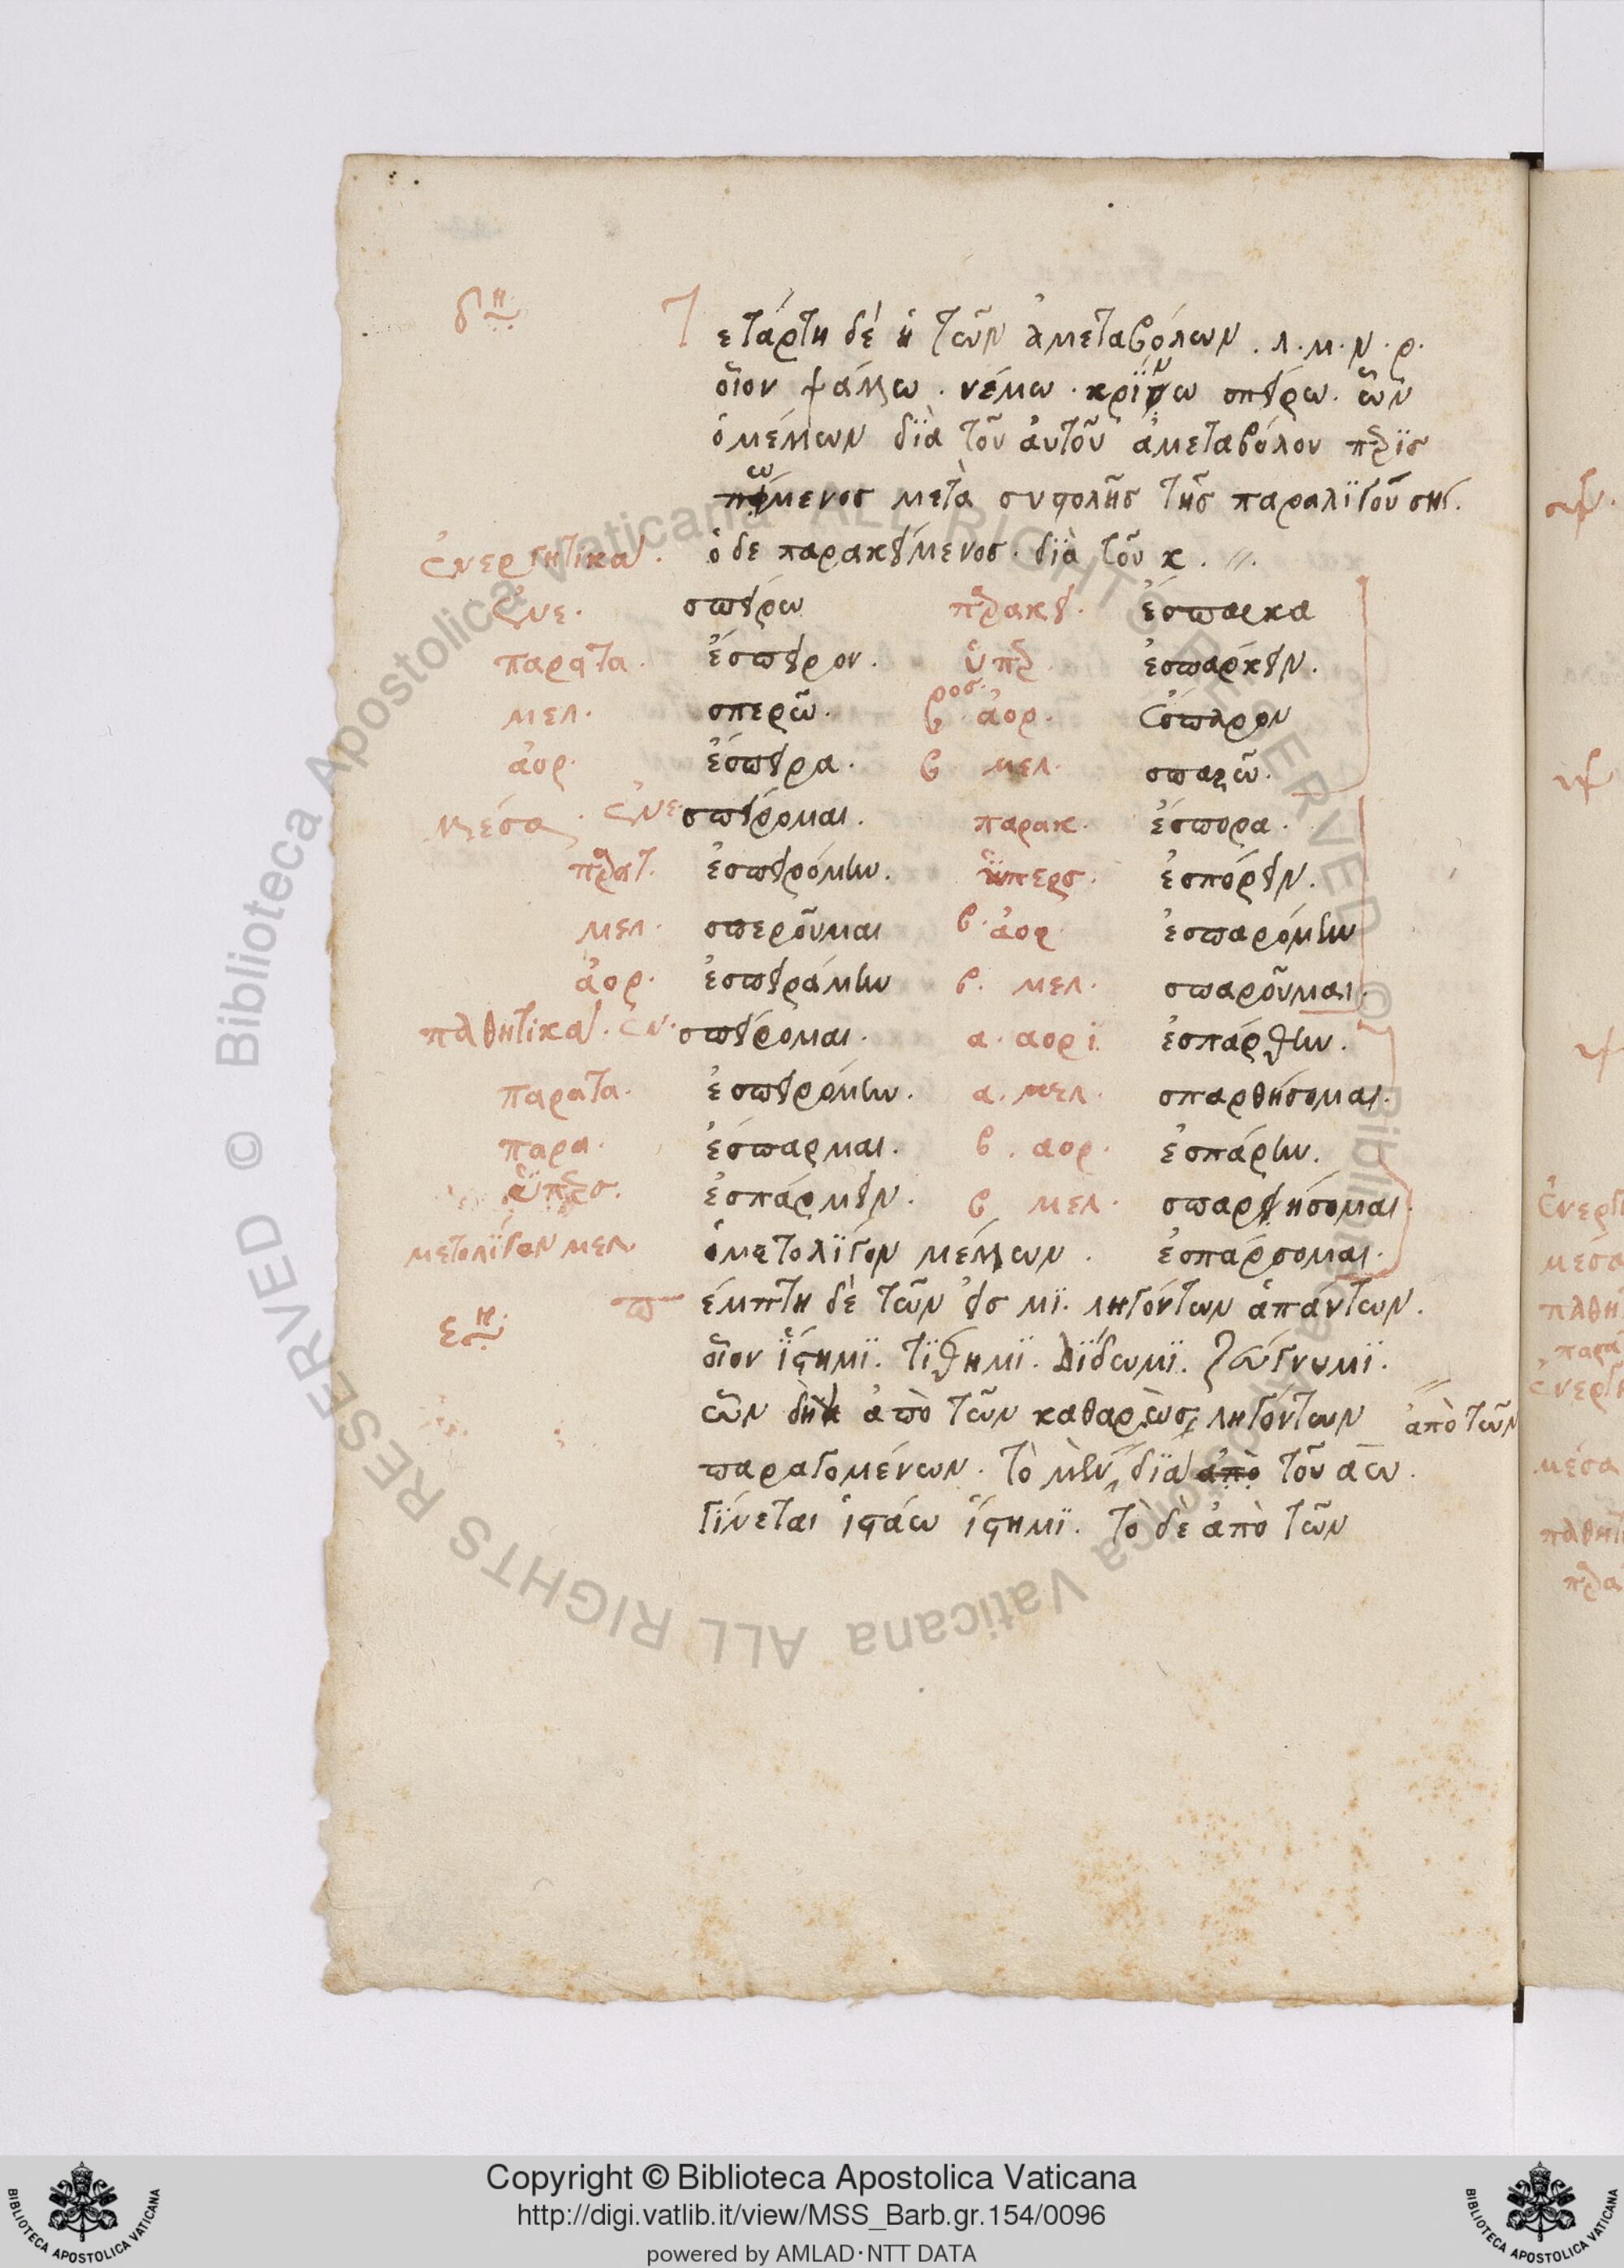 δη Τετάρτη δὲ ἡ τῶν ἀμεταβόλων . λ . μ . ν . ρ .
οἷον ψάλλω . νέμω . κρίνω σπείρω . ὧν
ὁ μέλλων διὰ τοῦ αὐτοῦ ἀμεταβόλου περισ
πώμενος μετὰ συστολῆς τῆς παραληγούσης .
ἐνεργητικά . ὁ δε παρακείμενος . διὰ τοῦ κ .
ἐνε . σπείρω παρακεί . ἔσπαρκα
παρατα . ἔσπειρον . ὑπερ ἐσπάρκειν .
μελ . σπερῶ . β . ἀορ . ἔσπαρον
ἀορ . ἔσπειρα . β μελ . σπαρῶ .
μέσα . ἐνε . σπείρομαι . παρακ . ἔσπορα .
παρατ . ἐσπειρόμην . ὑπερσ . ἐσπόρειν .
μελ . σπεροῦμαι β . ἀορ ἐσπαρόμην
ἀορ . ἐσπειράμην β . μελ . σπαροῦμαι .
παθητικά . ἐν . σπείρομαι . α . αορι ἐσπάρθην .
παρατα . ἐσπειρόμην . α . μελ . σπαρθήσομαι .
παρα . ἔσπαρμαι . β . αορ . ἐσπάρην .
ὑπερσ . ἐσπάρμειν . β μελ . σπαρήσομαι .
μετολίγον μελ ὁ μετολίγον μέλλων . ἐσπάρσομαι .
εη πέμπτη δὲ τῶν εἰς μϊ . ληγόντων ἁπάντων .
οἷον ἵστημϊ . τίθημϊ . δίδωμϊ . ζώγνυμϊ .
ὧν ἀπὸ τῶν καθαρῶς ληγόντων ἀπὸ τῶν
παραγομένων . τὸ μὲν διὰ ἀπὸ τοῦ αω .
γίνεται ἱστάω ἵστημϊ . τὸ δὲ ἀπὸ τῶν
Copyright © Biblioteca Apostolica Vaticana
http://digi.vatlib.it/view/MSS_Barb.gr.154/0096
powered by AMLAD·NTT DATA
BIBLIOTECA APOSTOLICA VATICANA
BIBLIOTECA APOSTOLICA VATICANA
© Biblioteca Apostolica Vaticana ALL RIGHTS RESERVED © Biblioteca Apostolica Vaticana ALL RIGHTS RESERVED